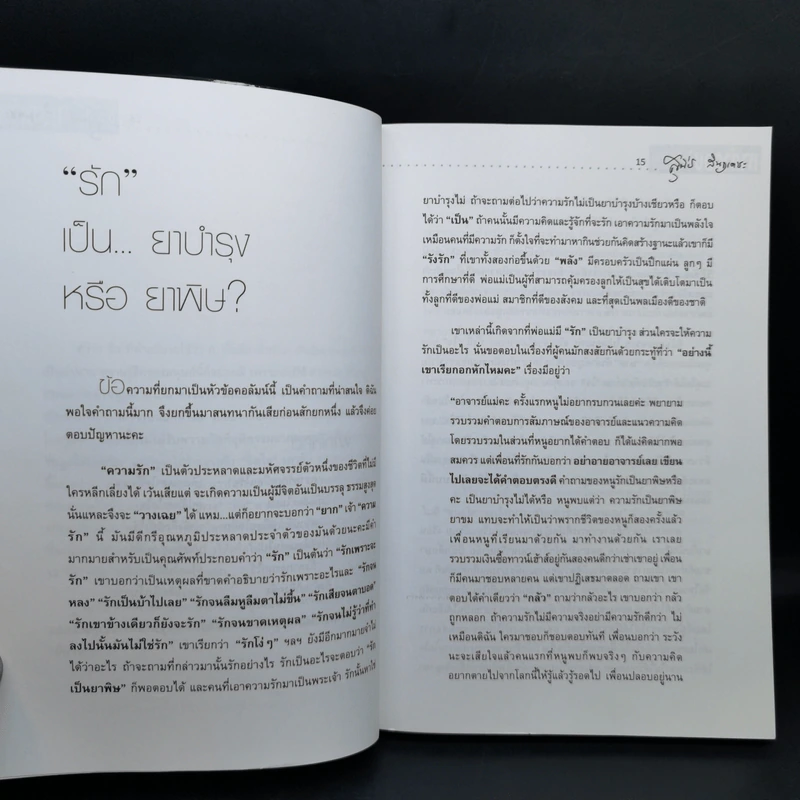 “รัก”
เป็น... ยาบำรุง
หรือ ยาพิษ?
ข้อความที่ยกมาเป็นหัวข้อคอลัมน์นี้ เป็นคำถามที่น่าสนใจ ดิฉัน
พอใจคำถามนี้มาก จึงยกขึ้นมาสนทนากันเสียก่อนสักยกหนึ่ง แล้วจึงค่อย
ตอบปัญหานะคะ
“ความรัก” เป็นตัวประหลาดและมหัศจรรย์ตัวหนึ่งของชีวิตที่ไม่มี
ใครหลีกเลี่ยงได้ เว้นเสียแต่ จะเกิดความเป็นผู้มีจิตอันเป็นบรรลุ ธรรมสูงสุด
นั่นแหละจึงจะ “วางเฉย” ได้ แหม...แต่ก็อยากจะบอกว่า “ยาก” เจ้า “ความ
รัก” นี้ มันมีดีกรีอุณหภูมิประหลาดประจำตัวของมันด้วยนะคะมีคำ
มากมายสำหรับเป็นคุณศัพท์ประกอบคำว่า “รัก” เป็นต้นว่า “รักเพราะจะ
รัก” เขาบอกว่าเป็นเหตุผลที่ขาดคำอธิบายว่ารักเพราะอะไรและ “รักจน
หลง” “รักเป็นบ้าไปเลย” “รักจนลืมหูลืมตาไม่ขึ้น” “รักเสียจนตาบอด”
“รักเขาข้างเดียวก็ยังจะรัก” “รักจนขาดเหตุผล” “รักจนไม่รู้ว่าที่ทำ
ลงไปนั้นมันไม่ใช่รัก” เขาเรียกว่า “รักโง่ๆ” ฯลฯ ยังมีอีกมากมายจำไม่
ได้ว่าอะไร ถ้าจะถามที่กล่าวมานั้นรักอย่างไร รักเป็นอะไรจะตอบว่า “รัก
เป็นยาพิษ” ก็พอตอบได้ และคนที่เอาความรักมาเป็นพระเจ้า รักนั้นหาใช่
15
ยาบำรุงไม่ ถ้าจะถามต่อไปว่าความรักไม่เป็นยาบำรุงบ้างเชียวหรือ ก็ตอบ
ได้ว่า “เป็น” ถ้าคนนั้นมีความคิดและรู้จักที่จะรัก เอาความรักมาเป็นพลังใจ
เหมือนคนที่มีความรัก ก็ตั้งใจที่จะทำมาหากินช่วยกันคิดสร้างฐานะแล้วเขาก็มี
“รังรัก” ที่เขาทั้งสองก่อขึ้นด้วย “พลัง” มีครอบครัวเป็นปึกแผ่น ลูกๆ มี
การศึกษาที่ดี พ่อแม่เป็นผู้ที่สามารถคุ้มครองลูกให้เป็นสุขได้เติบโตมาเป็น
ทั้งลูกที่ดีของพ่อแม่ สมาชิกที่ดีของสังคม และที่สุดเป็นพลเมืองดีของชาติ
เขาเหล่านี้เกิดจากที่พ่อแม่มี “รัก” เป็นยาบำรุง ส่วนใครจะให้ความ
รักเป็นอะไร นั่นขอตอบในเรื่องที่ผู้คนมักสงสัยกันด้วยกระทู้ที่ว่า “อย่างนี้
เขาเรียกอกหักไหมคะ” เรื่องมีอยู่ว่า
“อาจารย์แม่คะ ครั้งแรกหนูไม่อยากรบกวนเลยค่ะ พยายาม
รวบรวมคำตอบการสัมภาษณ์ของอาจารย์และแนวความคิด
โดยรวบรวมในส่วนที่หนูอยากได้คำตอบ ก็ได้แง่คิดมากพอ
สมควร แต่เพื่อนที่รักกันบอกว่า อย่าอายอาจารย์เลย เขียน
ไปเลยจะได้คำตอบตรงดี คำถามของหนูรักเป็นยาพิษหรือ
คะ เป็นยาบำรุงไม่ได้หรือ หนูพบแต่ว่า ความรักเป็นยาพิษ
ยาขม แทบจะทำให้เป็นว่าพรากชีวิตของหนูก็สองครั้งแล้ว
เพื่อนหนูที่เรียนมาด้วยกัน มาทำงานด้วยกัน เราเลย
รวบรวมเงินซื้อทาวน์เฮ้าส์อยู่กันสองคนดีกว่าเช่าเขาอยู่ เพื่อน
ก็มีคนมาชอบหลายคน แต่เขาปฏิเสธมาตลอด ถามเขา เขา
ตอบได้คำเดียวว่า “กลัว” ถามว่ากลัวอะไร เขาบอกว่า กลัว
ถูกหลอก ถ้าความรักไม่มีความจริงอย่ามีความรักดีกว่า ไม่
เหมือนดิฉัน ใครมาชอบก็ชอบตอบทันที เพื่อนบอกว่า ระวัง
นะจะเสียใจแล้วคนแรกที่หนูพบก็พบจริงๆ กับความคิด
อยากตายไปจากโลกนี้ให้รู้แล้วรู้รอดไป เพื่อนปลอบอยู่นาน